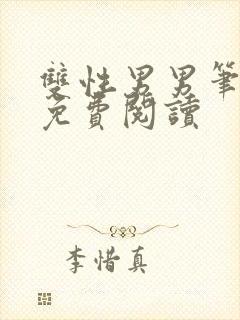 雙性男男筆
免費閱讀
李惜真